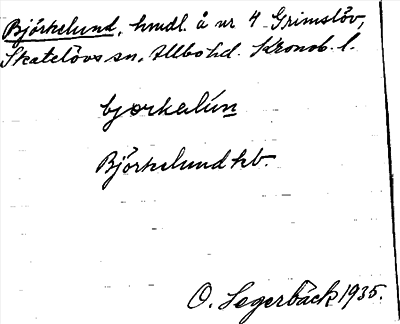 Björkelund, hmdl. å nr 4 Grimslöv,
Skatelövs sn, Allbo hd. Kronob. l.
bjørkalún
Björkelund hb.
O. Segerbäck 1935.